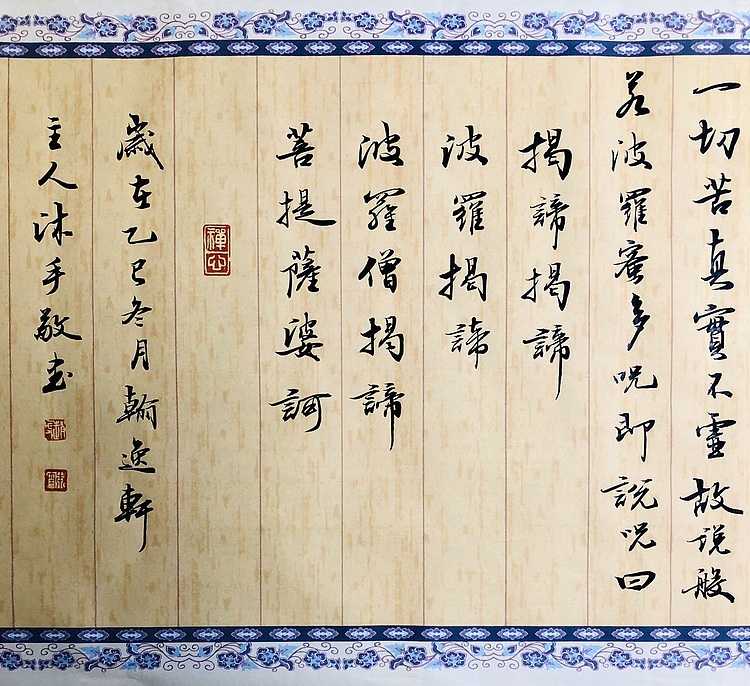 一切苦真實不虛故説般
若波羅蜜多呪即說呪曰
揭諦揭諦
波羅揭諦
波羅僧揭諦
菩提薩婆訶
禪心
歲在乙巳冬月翰逸軒
主人沐手敬書